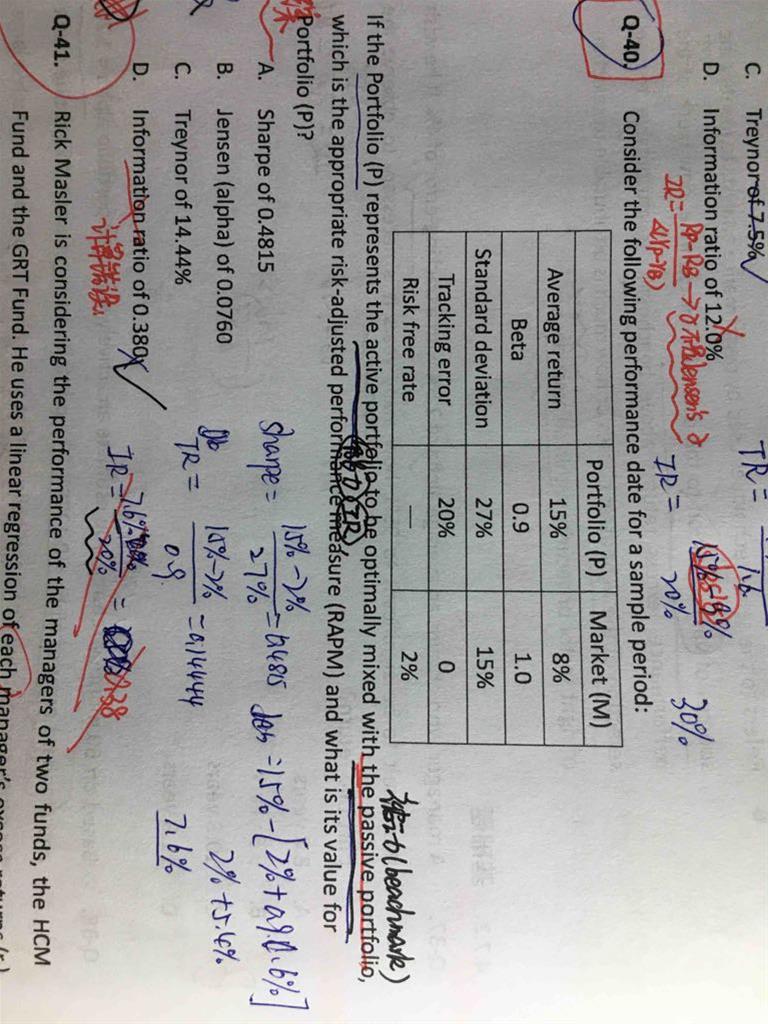 C. Treynor of 7.5%
TR =
1.6
D. Information ratio of 12.0%
IR =
IR =
20%
30%
Q-40. Consider the following performance date for a sample period:
Portfolio (P) Market (M)
Average return 15% 8%
Beta 0.9 1.0
Standard deviation 27% 15%
Tracking error 20% 0
Risk free rate — 2%
(beachmark)
If the Portfolio (P) represents the active portfolio to be optimally mixed with the passive portfolio,
which is the appropriate risk-adjusted performance measure (RAPM) and what is its value for
Portfolio (P)?
A. Sharpe of 0.4815
Sharpe = 15%-2% / 27% = 0.4815
B. Jensen (alpha) of 0.0760
= 15% - [2% + 0.9 × 6%]
C. Treynor of 14.44%
TR = 15%-2% / 0.9 = 0.14444
2% + 5.4%
7.6%
D. Information ratio of 0.380
计算错误.
IR = 7.6% / 20% = 0.38
Q-41. Rick Masler is considering the performance of the managers of two funds, the HCM
Fund and the GRT Fund. He uses a linear regression of each manager's excess returns